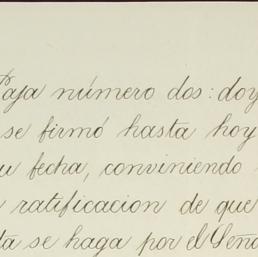 Caja número dos: doy
se firmó hasta hoy
fecha, conviniendo
ratificacion de que
se haga por el Seño